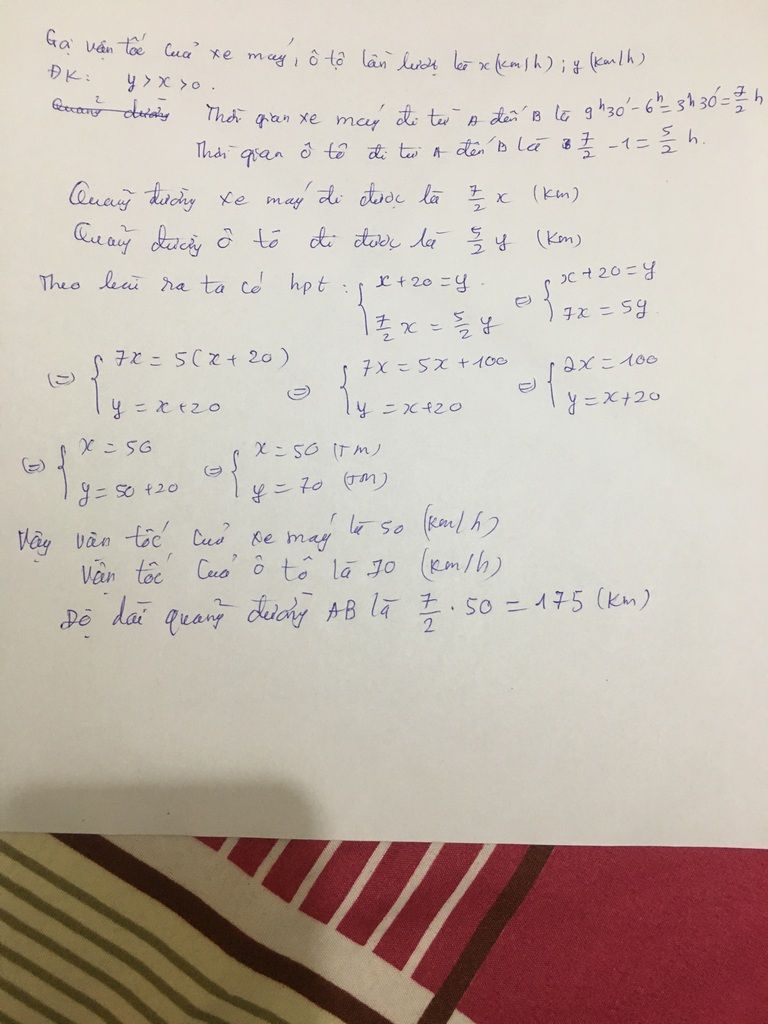 Gọi vận tốc của xe máy, ô tô lần lượt là x (km/h) ; y (km/h)
ĐK: y > x > 0.
Quang đường Thời gian xe máy đi từ A đến B là 9h30' - 6h = 3h30' = 7/2 h
Thời gian ô tô đi từ A đến B là 7/2 - 1 = 5/2 h.
Quãng đường xe máy đi được là 7/2 x (km)
Quãng đường ô tô đi được là 5/2 y (km)
Theo bài ra ta có hpt : { x + 20 = y . 7/2 x = 5/2 y ⇔ { x + 20 = y 7x = 5y
⇔ { 7x = 5(x + 20) y = x + 20 ⇔ { 7x = 5x + 100 y = x + 20 ⇔ { 2x = 100 y = x + 20
⇔ { x = 50 y = 50 + 20 ⇔ { x = 50 (TM) y = 70 (TM)
Vậy vận tốc của xe máy là 50 (km/h)
Vận tốc của ô tô là 70 (km/h)
Độ dài quãng đường AB là 7/2 . 50 = 175 (km)